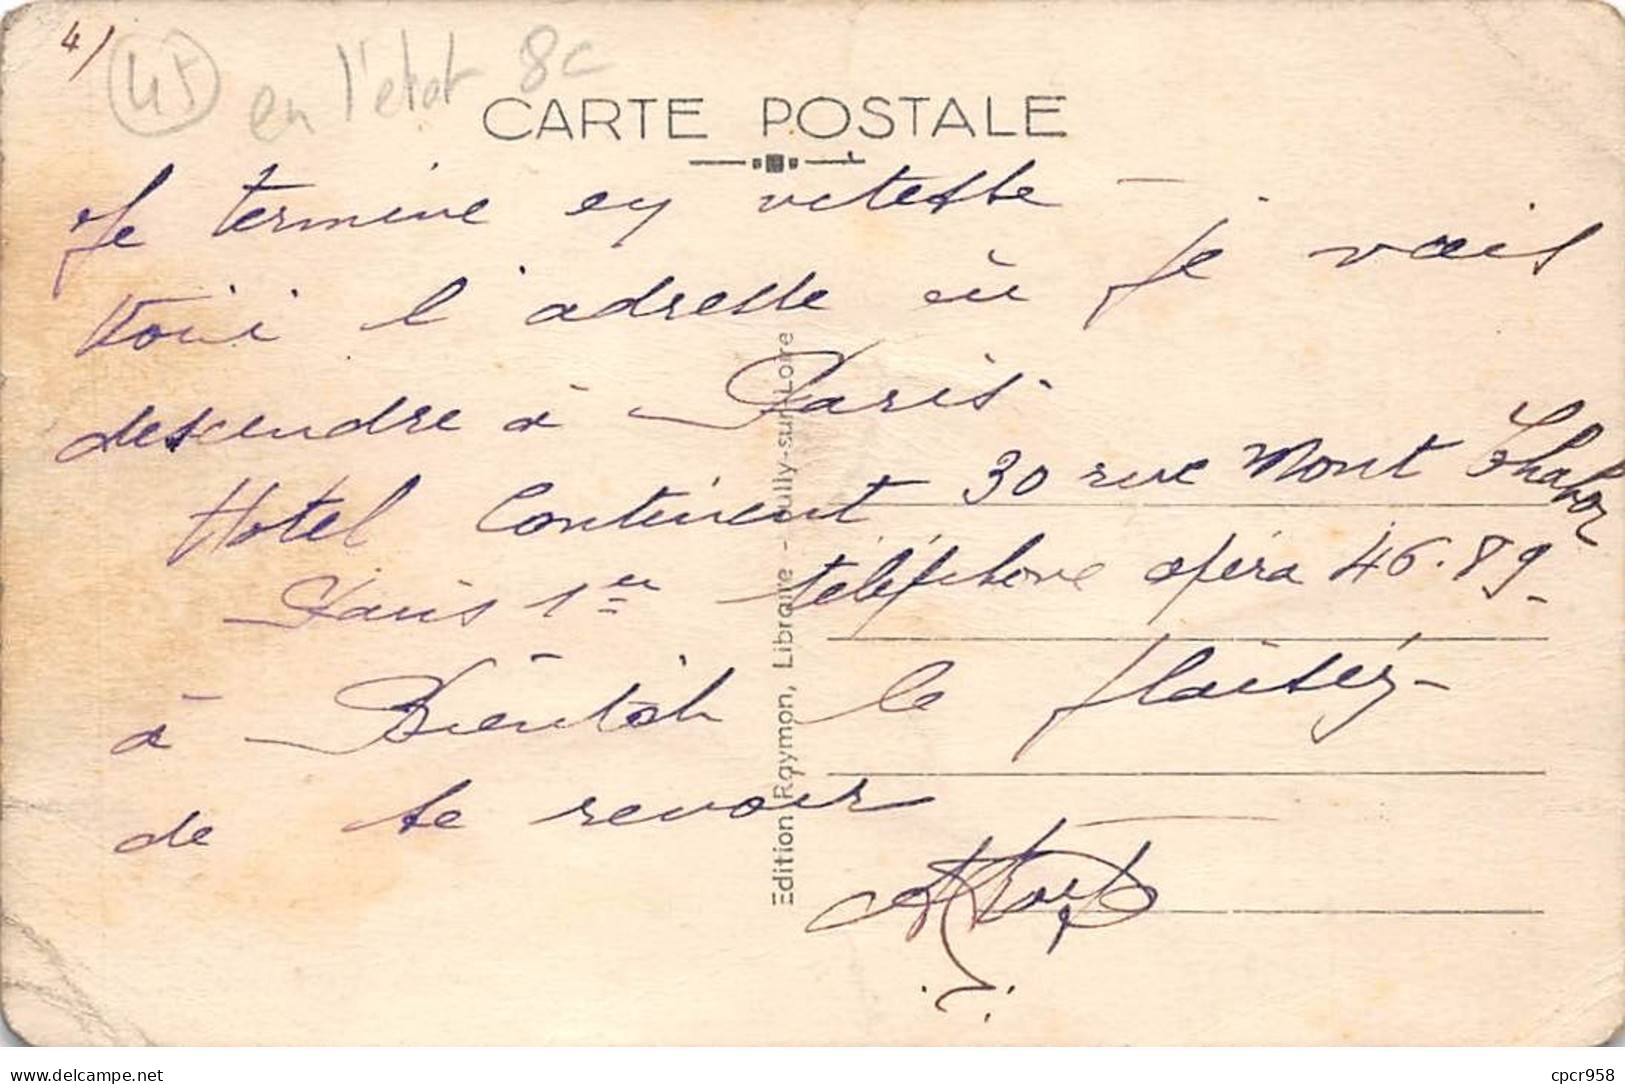 4/
45 en l'etat 8c
CARTE POSTALE
Je termine en vitesse –
Voici l'adresse où je vais
descendre à Paris.
Hotel Continent 30 rue Mont Thabor
Paris 1er téléphone opéra 46.89_
à Bientôt le plaisir –
de te revoir
Edition Raymon, Libraire - Sully-sur-Loire
delcampe.net
cpcr958